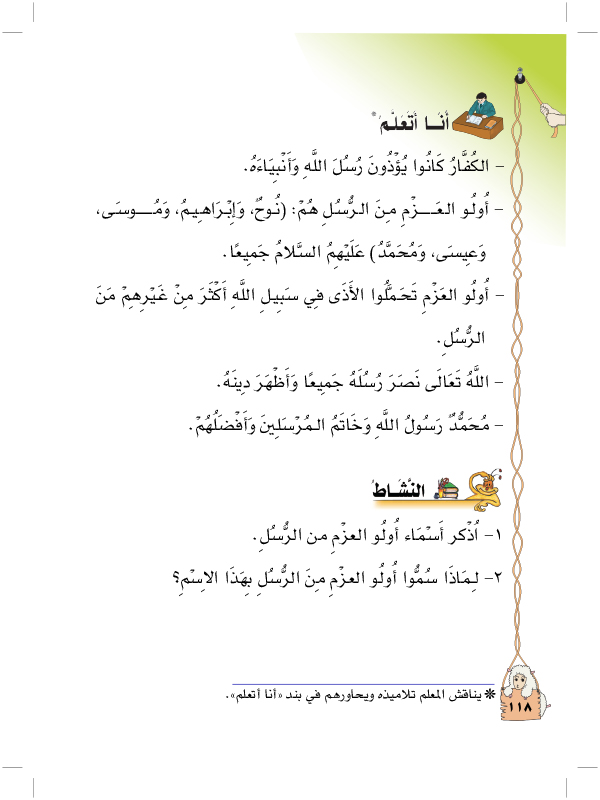 أَنَــا أَتَعَلَّمُ*
- الكُفَّارُ كَانُوا يُؤْذُونَ رُسُلَ اللَّهِ وَأَنْبِيَاءَهُ.
- أُولُو العَــزْمِ مِنَ الرُّسُلِ هُمْ: (نُوحٌ، وَإِبْرَاهِيمُ، وَمُــوسَى،
وَعِيسَى، وَمُحَمَّدُ) عَلَيْهِمُ السَّلامُ جَمِيعًا.
- أُولُو العَزْمِ تَحَمَّلُوا الأَذَى فِي سَبِيلِ اللَّهِ أَكْثَرَ مِنْ غَيْرِهِمْ مَنَ
الرُّسُلِ.
- اللَّهُ تَعَالَى نَصَرَ رُسُلَهُ جَمِيعًا وَأَظْهَرَ دِينَهُ.
- مُحَمَّدٌ رَسُولُ اللَّهِ وَخَاتَمُ المُرْسَلِينَ وَأَفْضَلُهُمْ.
النَّشَــاطُ
١- اُذْكر أَسْمَاء أُولُو العزْمِ من الرُّسُلِ.
٢- لِمَاذَا سُمُّوا أُولُو العزْمِ مِنَ الرُّسُلِ بِهَذَا الاِسْمِ؟
* يناقش المعلم تلاميذه ويحاورهم في بند «أنا أتعلم».
١١٨